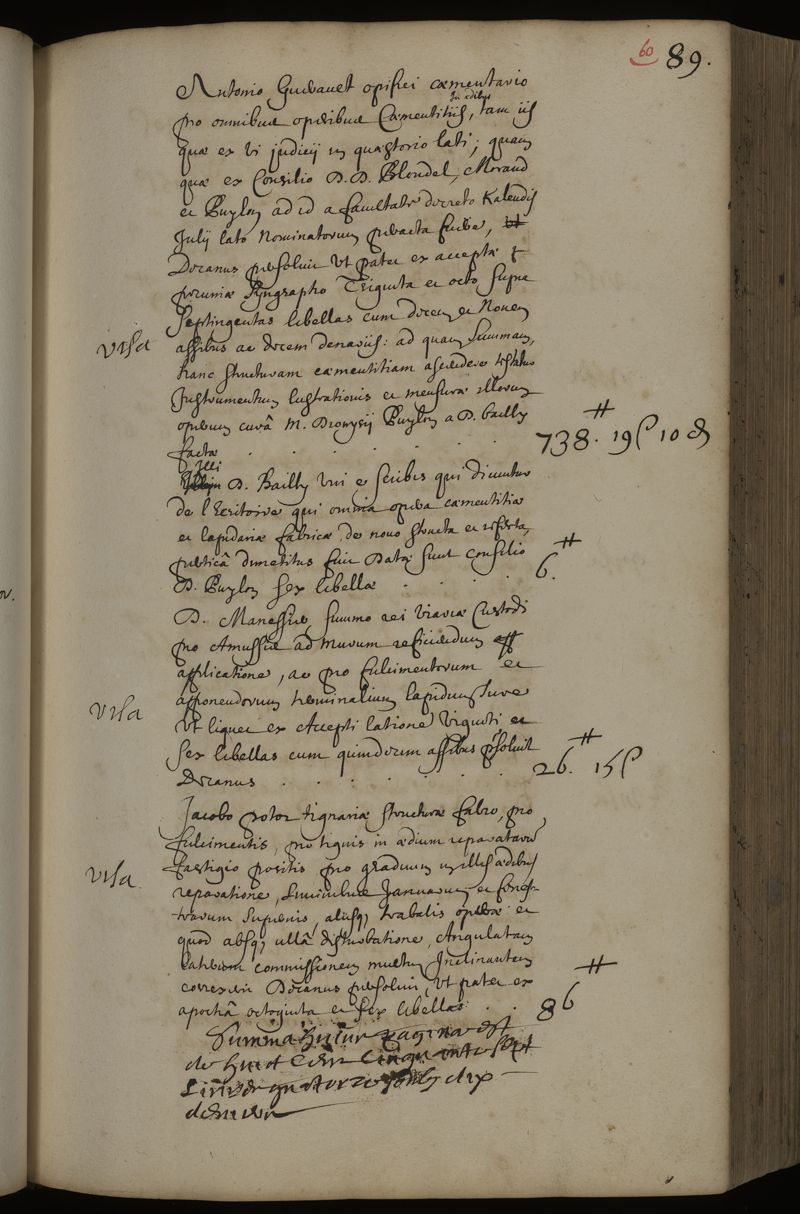 60 89.
Antonio Guevauet opifici cæmentario
in ædibus
pro omnibus operibus Cæmentitiis, tam iis
quæ ex vi judicij in quæstorio lati, quam
quæ ex Consilio D. D. Blondel, Morand
et Puylon ad id a facultatis decreto Kalendis
Julij lato nominatorum peracta fuere, ut
Decanus persoluit ut patet ex acceptæ
pecuniæ Syngrapho Triginta et octo supra
septingentas libellas cum decem et novem
visa
assibus ac decem denariis: ad quam summam,
hanc structuram cæmentitiam ascendere testatur
Instrumentum lustrationis et mensuræ illorum
operum curâ M. Dionysij Puylon a D. bailly
facta . . . . . . 738. ₶ 19 ſ 10 d
Illi
D. Bailly uni e scribis qui dicuntur
de l'Ecritoire qui omnia opera cæmentitia
et lapidariæ fabricæ de novo structa et referta,
perticâ dimetitus fuit Datæ sunt consilio
D. Puylon sex libellæ . . . . 6. ₶
D. Manessier summo rei viariæ Custodi
pro Amussis ad murum reficiendum
applicatione, ac pro fulcimentorum et
apponendorum terminalium lapidum Jure
visa
ut liquet ex Accepti latione viginti et
sex libellas cum quindecim assibus persoluit
Decanus . . . . . . . 26. ₶ 15 ſ
Jacobo potor tignariæ structuræ fabro, pro
fulcimentis, pro tignis in ædium reparatarum
visa
fastigio positis pro graduum in illis ædibus
reparatione, Liminibus Januarum et fenes-
trarum supernis, aliisq; trabalis operæ et
quod absq; ullâ disturbatione, Angulatam
commissionem multum Inclinantem
correxit Decanus persoluit, ut patet ex
apochâ octoginta et sex libellas . . 86 ₶
Summa huius paginæ est
de huit Cens Cinquante sept
Livres quatorze sols dix
deniers